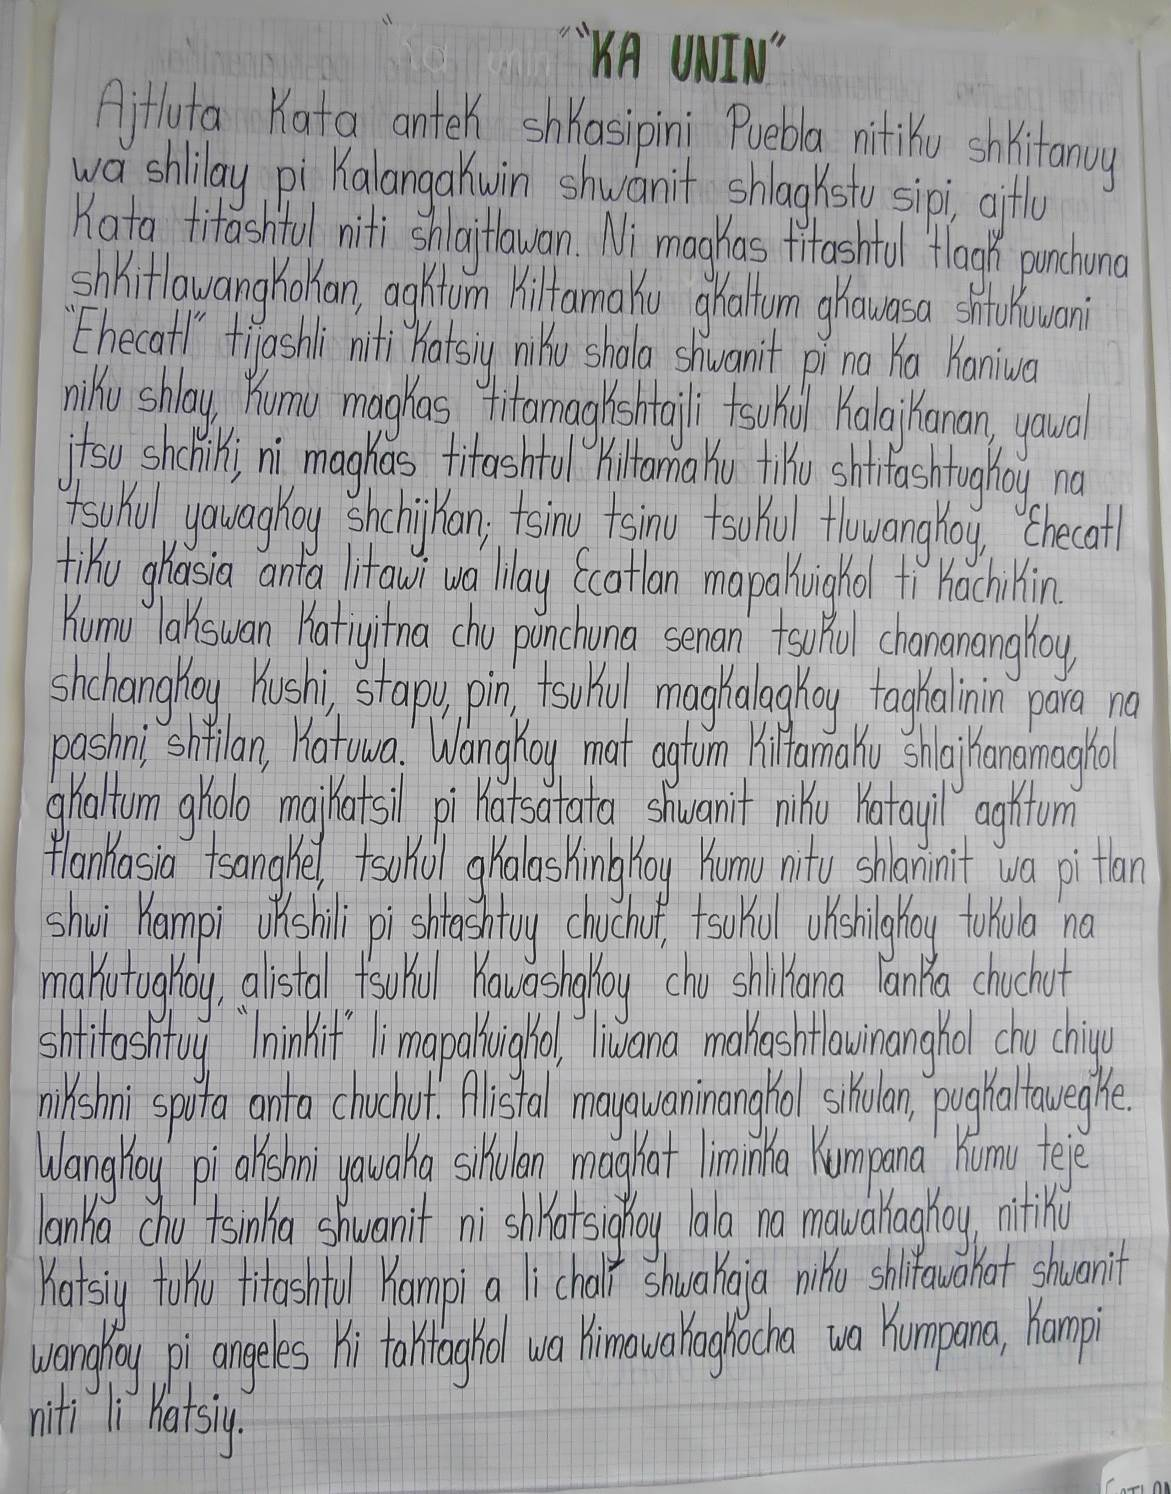 "KA UNIN"
Ajtluta Kata antek shkasipini Puebla nitiku shkitanuy
wa shlilay pi Kalangakwin shwanit shlagkstu sipi, ajtlu
Kata titashtul niti shlajtlawan. Ni magkas titashtul tlagk punchuna
shkitlawangkokan, agktum kiltamaku gkaltum gkawasa shtukuwani
"Ehecatl" tijashli niti katsiy niku shala shwanit pi na ka kaniwa
niku shlay, kumu magkas titamagkshtajli tsukul kalajkanan, yawal
jtsu shchiki, ni magkas titashtul kiltamaku tiku shtitashtugkoy na
tsukul yawagkoy shchijkan; tsinu tsinu tsukul tluwangkoy, Ehecatl
tiku gkasia anta litawi wa lilay Ecatlan mapakuigkol ti kachikin.
Kumu lakswan katiyitna chu punchuna senan tsukul chananangkoy,
shchangkoy kushi, stapu, pin, tsukul magkalagkoy tagkalinin para na
pashni, shtilan, katuwa. Wangkoy mat agtum kiltamaku shlajkanamagkol
gkaltum gkolo majkatsil pi katsatata shwanit niku katayil agktum
tlankasia tsangkel, tsukul gkalaskingkoy kumu nitu shlaninit wa pi tlan
shwi kampi ukshili pi shtashtuy chuchut, tsukul ukshilgkoy tukula na
makutugkoy, alistal tsukul kawashgkoy chu shlikana lanka chuchut
shtitashtuy "Ininkit" li mapakuigkol, liwana makashtlawinangkol chu chiyu
nikshni sputa anta chuchut. Alistal mayawaninangkol sikulan, pugkaltawegke.
Wangkoy pi akshni yawaka sikulan magkat liminka Kumpana kumu teje
lanka chu tsinka shwanit ni shkatsigkoy lala na mawakagkoy, nitiku
katsiy tuku titashtul kampi a li chali shwakaja niku shlitawakat shwanit
wangkoy pi angeles ki taktagkol wa kimawakagkocha wa Kumpana, kampi
niti li katsiy.